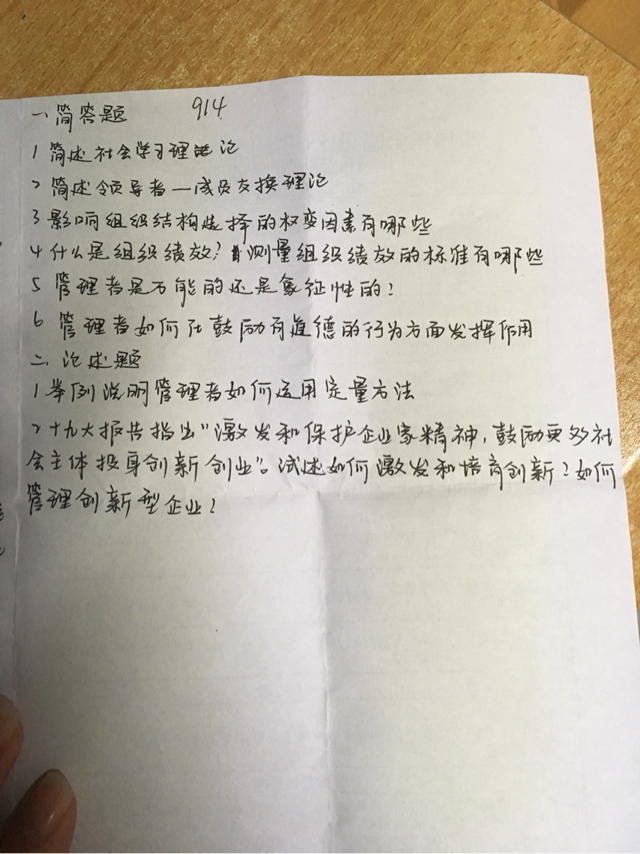 914
一 简答题
1 简述社会学习理论
2 简述领导者—成员交换理论
3 影响组织结构选择的权变因素有哪些
4 什么是组织绩效?测量组织绩效的标准有哪些
5 管理者是万能的还是象征性的?
6 管理者如何在鼓励有道德的行为方面发挥作用
二、论述题
1 举例说明管理者如何运用定量方法
2 十九大报告指出"激发和保护企业家精神,鼓励更多社
会主体投身创新创业"。试述如何激发和培育创新?如何
管理创新型企业?